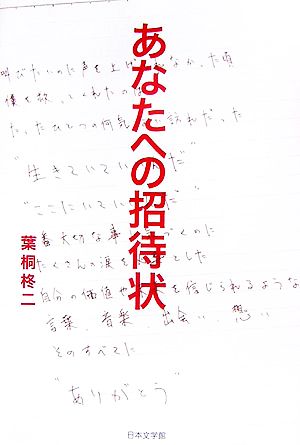 あなたへの招待状
葉桐柊二
叫びたいのに声を上げ なかった頃
僕を救 くれたのは
たったひとつの何気 い歌だった
"生きていていい だ"
"ここにいていい だ"
番大切な事 づくのに
たくさんの涙を とした
自分の価値や を信じられるような
言葉、音楽、出会い、想い
そのすべてに
"ありがとう"
日本文学館